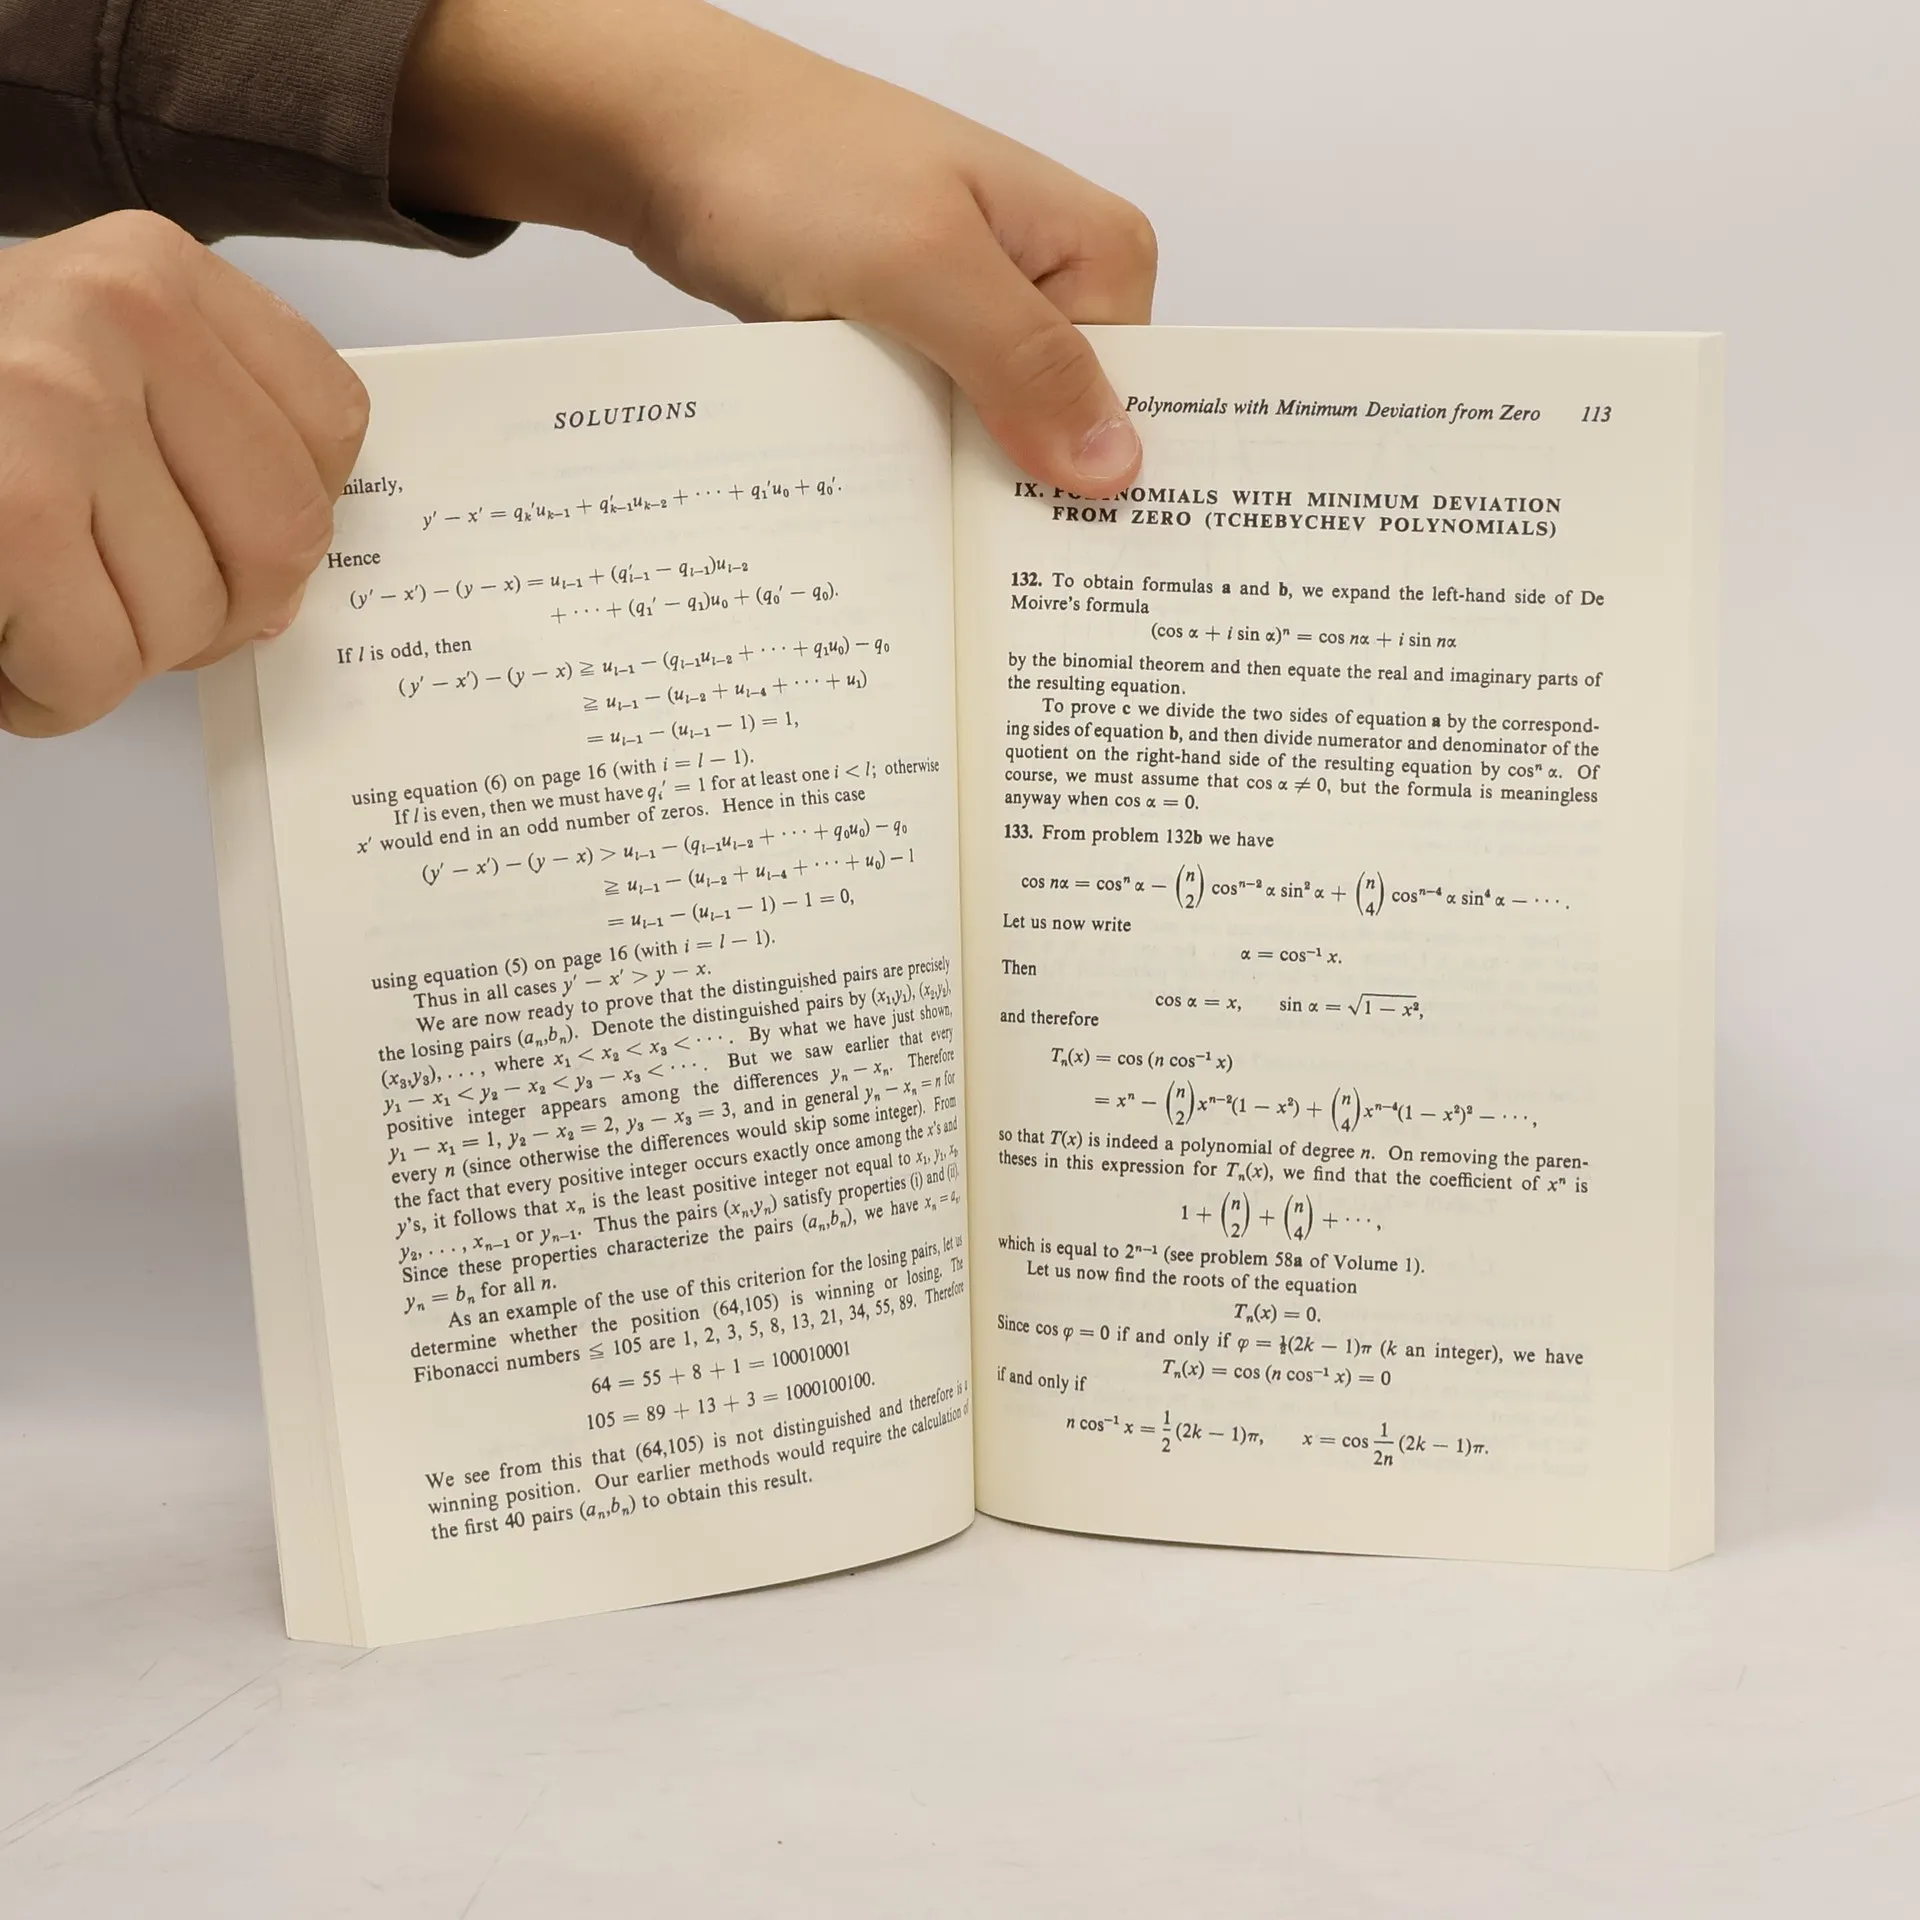 SOLUTIONS
y′ − x′ = qₖ′uₖ₋₁ + q′ₖ₋₁uₖ₋₂ + · · · + q₁′u₀ + q₀′.
Hence
(y′ − x′) − (y − x) = uₗ₋₁ + (q′ₗ₋₁ − qₗ₋₁)uₗ₋₂
+ · · · + (q₁′ − q₁)u₀ + (q₀′ − q₀).
If l is odd, then
(y′ − x′) − (y − x) ≧ uₗ₋₁ − (qₗ₋₁uₗ₋₂ + · · · + q₁u₀) − q₀
≧ uₗ₋₁ − (uₗ₋₂ + uₗ₋₄ + · · · + u₁)
= uₗ₋₁ − (uₗ₋₁ − 1) = 1,
using equation (6) on page 16 (with i = l − 1).
If l is even, then we must have qᵢ′ = 1 for at least one i < l; otherwise
x′ would end in an odd number of zeros. Hence in this case
(y′ − x′) − (y − x) > uₗ₋₁ − (qₗ₋₁uₗ₋₂ + · · · + q₀u₀) − q₀
≧ uₗ₋₁ − (uₗ₋₂ + uₗ₋₄ + · · · + u₀) − 1
= uₗ₋₁ − (uₗ₋₁ − 1) − 1 = 0,
using equation (5) on page 16 (with i = l − 1).
Thus in all cases y′ − x′ > y − x.
We are now ready to prove that the distinguished pairs are precisely
the losing pairs (aₙ,bₙ). Denote the distinguished pairs by (x₁,y₁), (x₂,y₂),
(x₃,y₃), . . . , where x₁ < x₂ < x₃ < · · · . By what we have just shown,
y₁ − x₁ < y₂ − x₂ < y₃ − x₃ < · · · . But we saw earlier that every
positive integer appears among the differences yₙ − xₙ. Therefore
y₁ − x₁ = 1, y₂ − x₂ = 2, y₃ − x₃ = 3, and in general yₙ − xₙ = n for
every n (since otherwise the differences would skip some integer). From
the fact that every positive integer occurs exactly once among the x's and
y's, it follows that xₙ is the least positive integer not equal to x₁, y₁,
y₂, . . . , xₙ₋₁ or yₙ₋₁. Thus the pairs (xₙ,yₙ) satisfy properties (i) and (ii).
Since these properties characterize the pairs (aₙ,bₙ), we have xₙ = aₙ,
yₙ = bₙ for all n.
As an example of the use of this criterion for the losing pairs, let us
determine whether the position (64,105) is winning or losing. The
Fibonacci numbers ≦ 105 are 1, 2, 3, 5, 8, 13, 21, 34, 55, 89. Therefore
64 = 55 + 8 + 1 = 100010001
105 = 89 + 13 + 3 = 1000100100.
We see from this that (64,105) is not distinguished and therefore is a
winning position. Our earlier methods would require the calculation of
the first 40 pairs (aₙ,bₙ) to obtain this result.
Polynomials with Minimum Deviation from Zero 113
IX. WITH MINIMUM DEVIATION
FROM ZERO (TCHEBYCHEV POLYNOMIALS)
132. To obtain formulas a and b, we expand the left-hand side of De
Moivre's formula
(cos α + i sin α)ⁿ = cos nα + i sin nα
by the binomial theorem and then equate the real and imaginary parts of
the resulting equation.
To prove c we divide the two sides of equation a by the correspond-
ing sides of equation b, and then divide numerator and denominator of the
quotient on the right-hand side of the resulting equation by cosⁿ α. Of
course, we must assume that cos α ≠ 0, but the formula is meaningless
anyway when cos α = 0.
133. From problem 132b we have
cos nα = cosⁿ α − (n 2) cosⁿ⁻² α sin² α + (n 4) cosⁿ⁻⁴ α sin⁴ α − · · · .
Let us now write
α = cos⁻¹ x.
Then
cos α = x, sin α = √1 − x²,
and therefore
Tₙ(x) = cos (n cos⁻¹ x)
= xⁿ − (n 2)xⁿ⁻²(1 − x²) + (n 4)xⁿ⁻⁴(1 − x²)² − · · · ,
so that T(x) is indeed a polynomial of degree n. On removing the paren-
theses in this expression for Tₙ(x), we find that the coefficient of xⁿ is
1 + (n 2) + (n 4) + · · · ,
which is equal to 2ⁿ⁻¹ (see problem 58a of Volume 1).
Let us now find the roots of the equation
Tₙ(x) = 0.
Since cos φ = 0 if and only if φ = ½(2k − 1)π (k an integer), we have
Tₙ(x) = cos (n cos⁻¹ x) = 0
if and only if
n cos⁻¹ x = 1/2 (2k − 1)π, x = cos 1/2n (2k − 1)π.